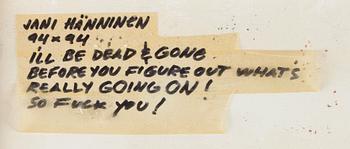 JANI HÄNNINEN
94 × 94
I'LL BE DEAD & GONE
BEFORE YOU FIGURE OUT WHAT'S
REALLY GOING ON!
SO FUCK YOU!